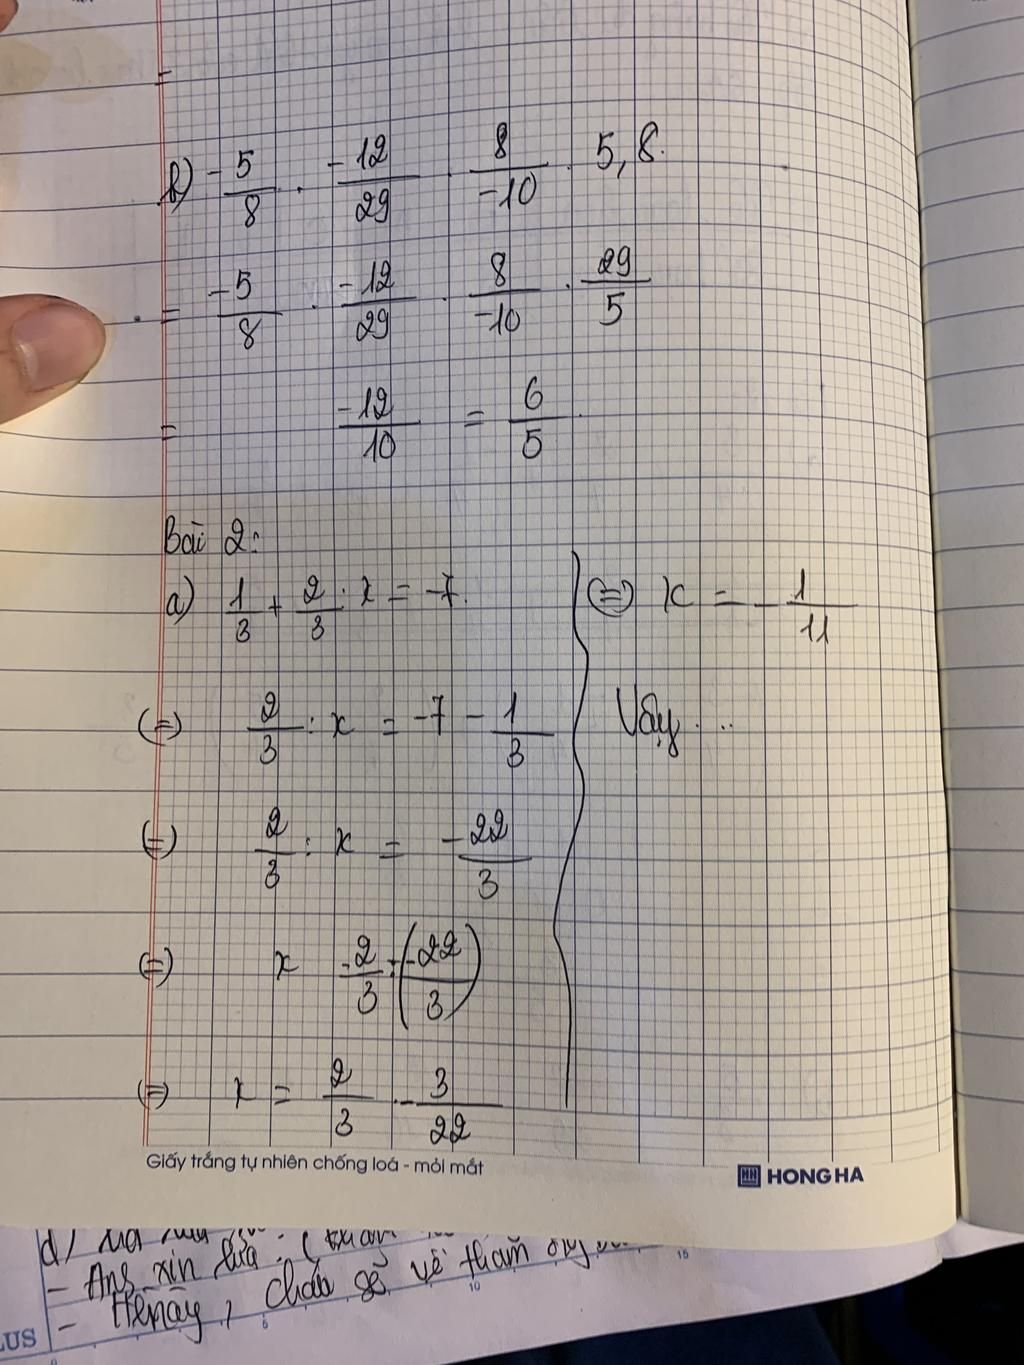 b) -5/8 . -12/29 . 8/-10 . 5,8.
= -5/8 . -12/29 . 8/-10 . 29/5
= -12/10 = 6/5
Bài 2:
a) 1/3 + 2/3 : x = -7.
(=) 2/3 : x = -7 - 1/3
(=) 2/3 : x = -22/3
(=) x -2/3 : (-22/3)
(=) x = 2/3 . -3/22
(=) x = -1/11
Vậy ...
Giấy trắng tự nhiên chống loá - mỏi mắt
HONG HA
d)
- Ans xin lửa : (
- Hênày, cháu sẽ về thăm
15
10
5
LUS